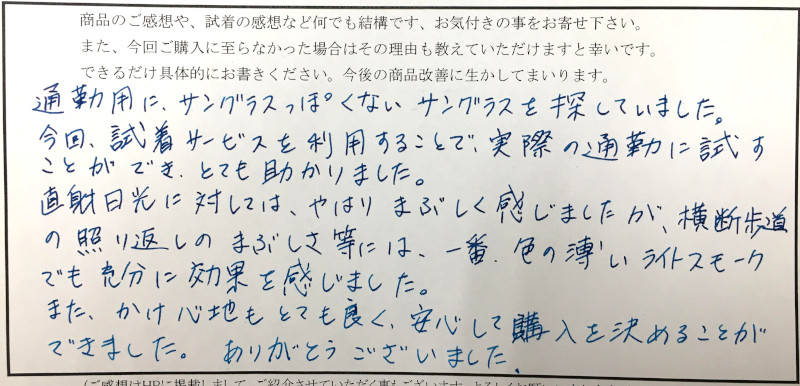 商品のご感想や、試着の感想など何でも結構です、お気付きの事をお寄せ下さい。
また、今回ご購入に至らなかった場合はその理由も教えていただけますと幸いです。
できるだけ具体的にお書きください。今後の商品改善に生かしてまいります。
通勤用に、サングラスっぽくない サングラスを探していました。
今回、試着サービスを利用することで、実際の通勤に試す
ことができ、とても助かりました。
直射日光に対しては、やはり まぶしく感じましたが、横断歩道
の照り返しの まぶしさ等には、一番、色の薄い ライトスモーク
でも 充分に効果を感じました。
また、かけ心地も とても良く、安心して購入を決めることが
できました。 ありがとうございました。
(ご感想はHPに掲載しまして、ご紹介させていただく事もございます。